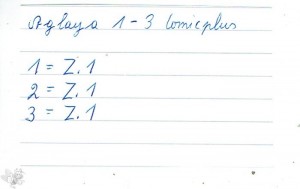 Aglaya 1 - 3 Comicplus
1 = Z. 1
2 = Z. 1
3 = Z. 1